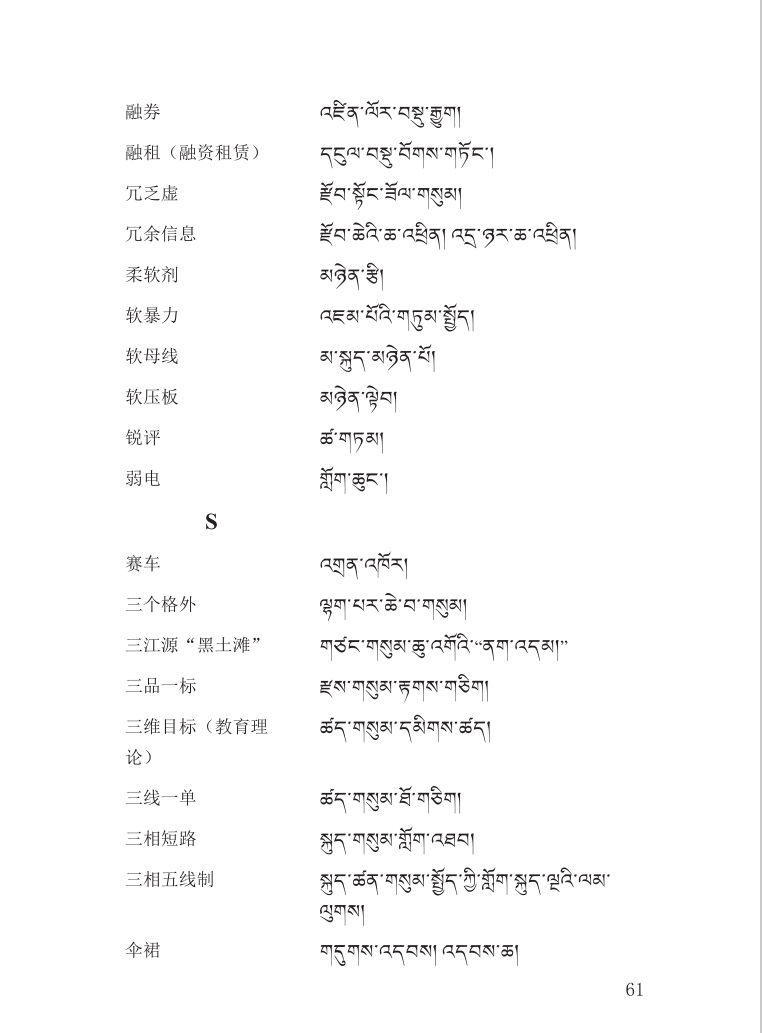 融券 འཛིན་ལོར་བསྡུ་རྒྱུག།
融租（融资租赁） དངུལ་བསྡུ་བོགས་གཏོང་།
冗乏虚 རྫོབ་སྟོང་ཟོལ་གསུམ།
冗余信息 རྫོབ་ཆེའི་ཆ་འཕྲིན། འདྲ་ཉར་ཆ་འཕྲིན།
柔软剂 མཉེན་རྩི།
软暴力 འཇམ་པོའི་གཏུམ་སྤྱོད།
软母线 མ་སྐུད་མཉེན་པོ།
软压板 མཉེན་ལྟེབ།
锐评 ཚ་གཏམ།
弱电 གློག་ཆུང་།
S
赛车 འགྲན་འཁོར།
三个格外 ལྷག་པར་ཆེ་བ་གསུམ།
三江源“黑土滩” གཙང་གསུམ་ཆུ་འགོའི་“ནག་འདམ།”
三品一标 རྫས་གསུམ་རྟགས་གཅིག།
三维目标（教育理 ཚད་གསུམ་དམིགས་ཚད།
论）
三线一单 ཚད་གསུམ་ཐོ་གཅིག།
三相短路 སྐུད་གསུམ་གློག་འཐབ།
三相五线制 སྐུད་ཚན་གསུམ་སྤྱོད་ཀྱི་གློག་སྐུད་ལྔའི་ལམ་
ལུགས།
伞裙 གདུགས་འདབས། འདབས་ཆ།
61